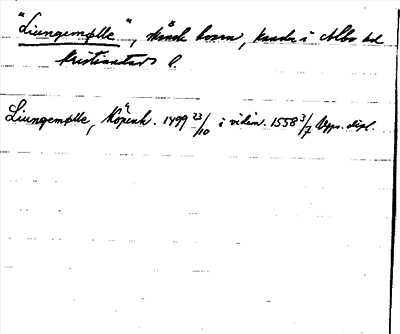 "Liungemølle", skånsk kvarn, kanske i Albo hd
Kristianstads l.
Liungemølle, Köpenh. 1499 23/10 i vidim. 1558 3/7 Upps. dipl.